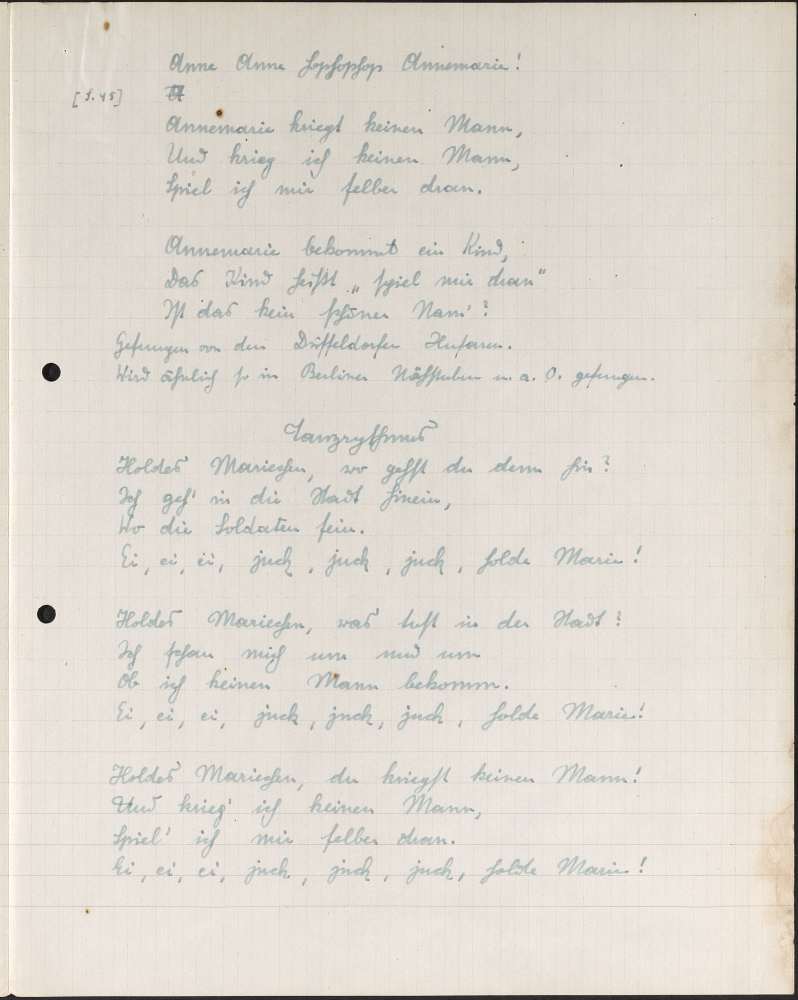 Anne Anne hophophop Annemarie!
[S. 45]
Annemarie kriegt keinen Mann,
Und krieg ich keinen Mann,
Spiel ich mir selber dran.
Annemarie bekommt ein Kind,
Das Kind heißt „spiel mir dran"
Ist das kein schöner Nam'?
Gesungen von den Düsseldorfer Husaren.
Wird ähnlich so in Berliner Nähstuben u. a. O. gesungen.
Tanzrythmus
Holdes Mariechen, wo gehst du denn hin?
Ich geh' in die Stadt hinein,
Wo die Soldaten sein.
Ei, ei, ei, juck, juck, juck, holde Marie!
Holdes Mariechen, was tust in der Stadt?
Ich schau mich um und um
Ob ich keinen Mann bekomm.
Ei, ei, ei, juck, juck, juck, holde Marie!
Holdes Mariechen, du kriegst keinen Mann!
Und krieg' ich keinen Mann,
Spiel' ich mir selber dran.
Ei, ei, ei, juck, juck, juck, holde Marie!